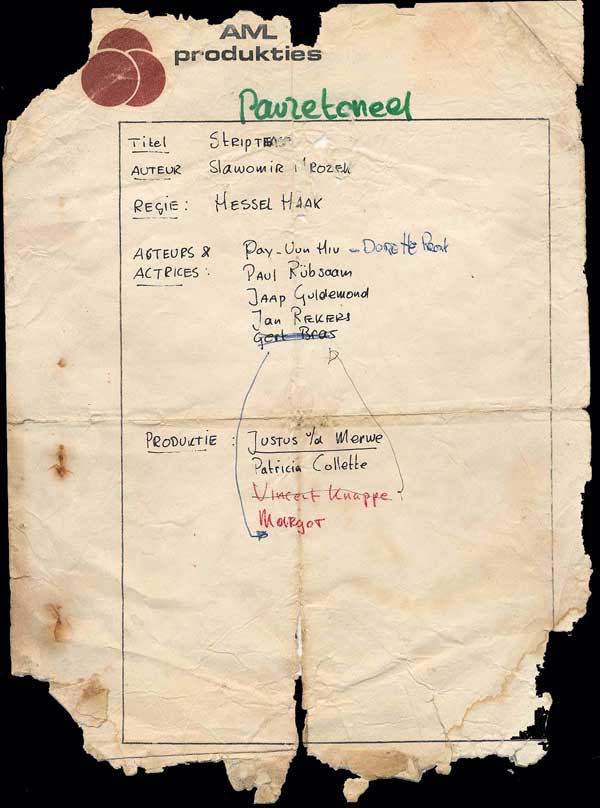 AML
produkties
Pauzetoneel
Titel STRIPTEASE
AUTEUR Slawomir Mrozek
REGIE: MESSEL HAAK
ACTEURS & Pay-Uun Hiu - DORETTE PRONK
ACTRICES: PAUL Rübsaam
JAAP Guldemond
Jan REKERS
Gert Bras
PRODUKTIE: JUSTUS v/d Merwe
Patricia Collette
Vincent Knappe
Margot